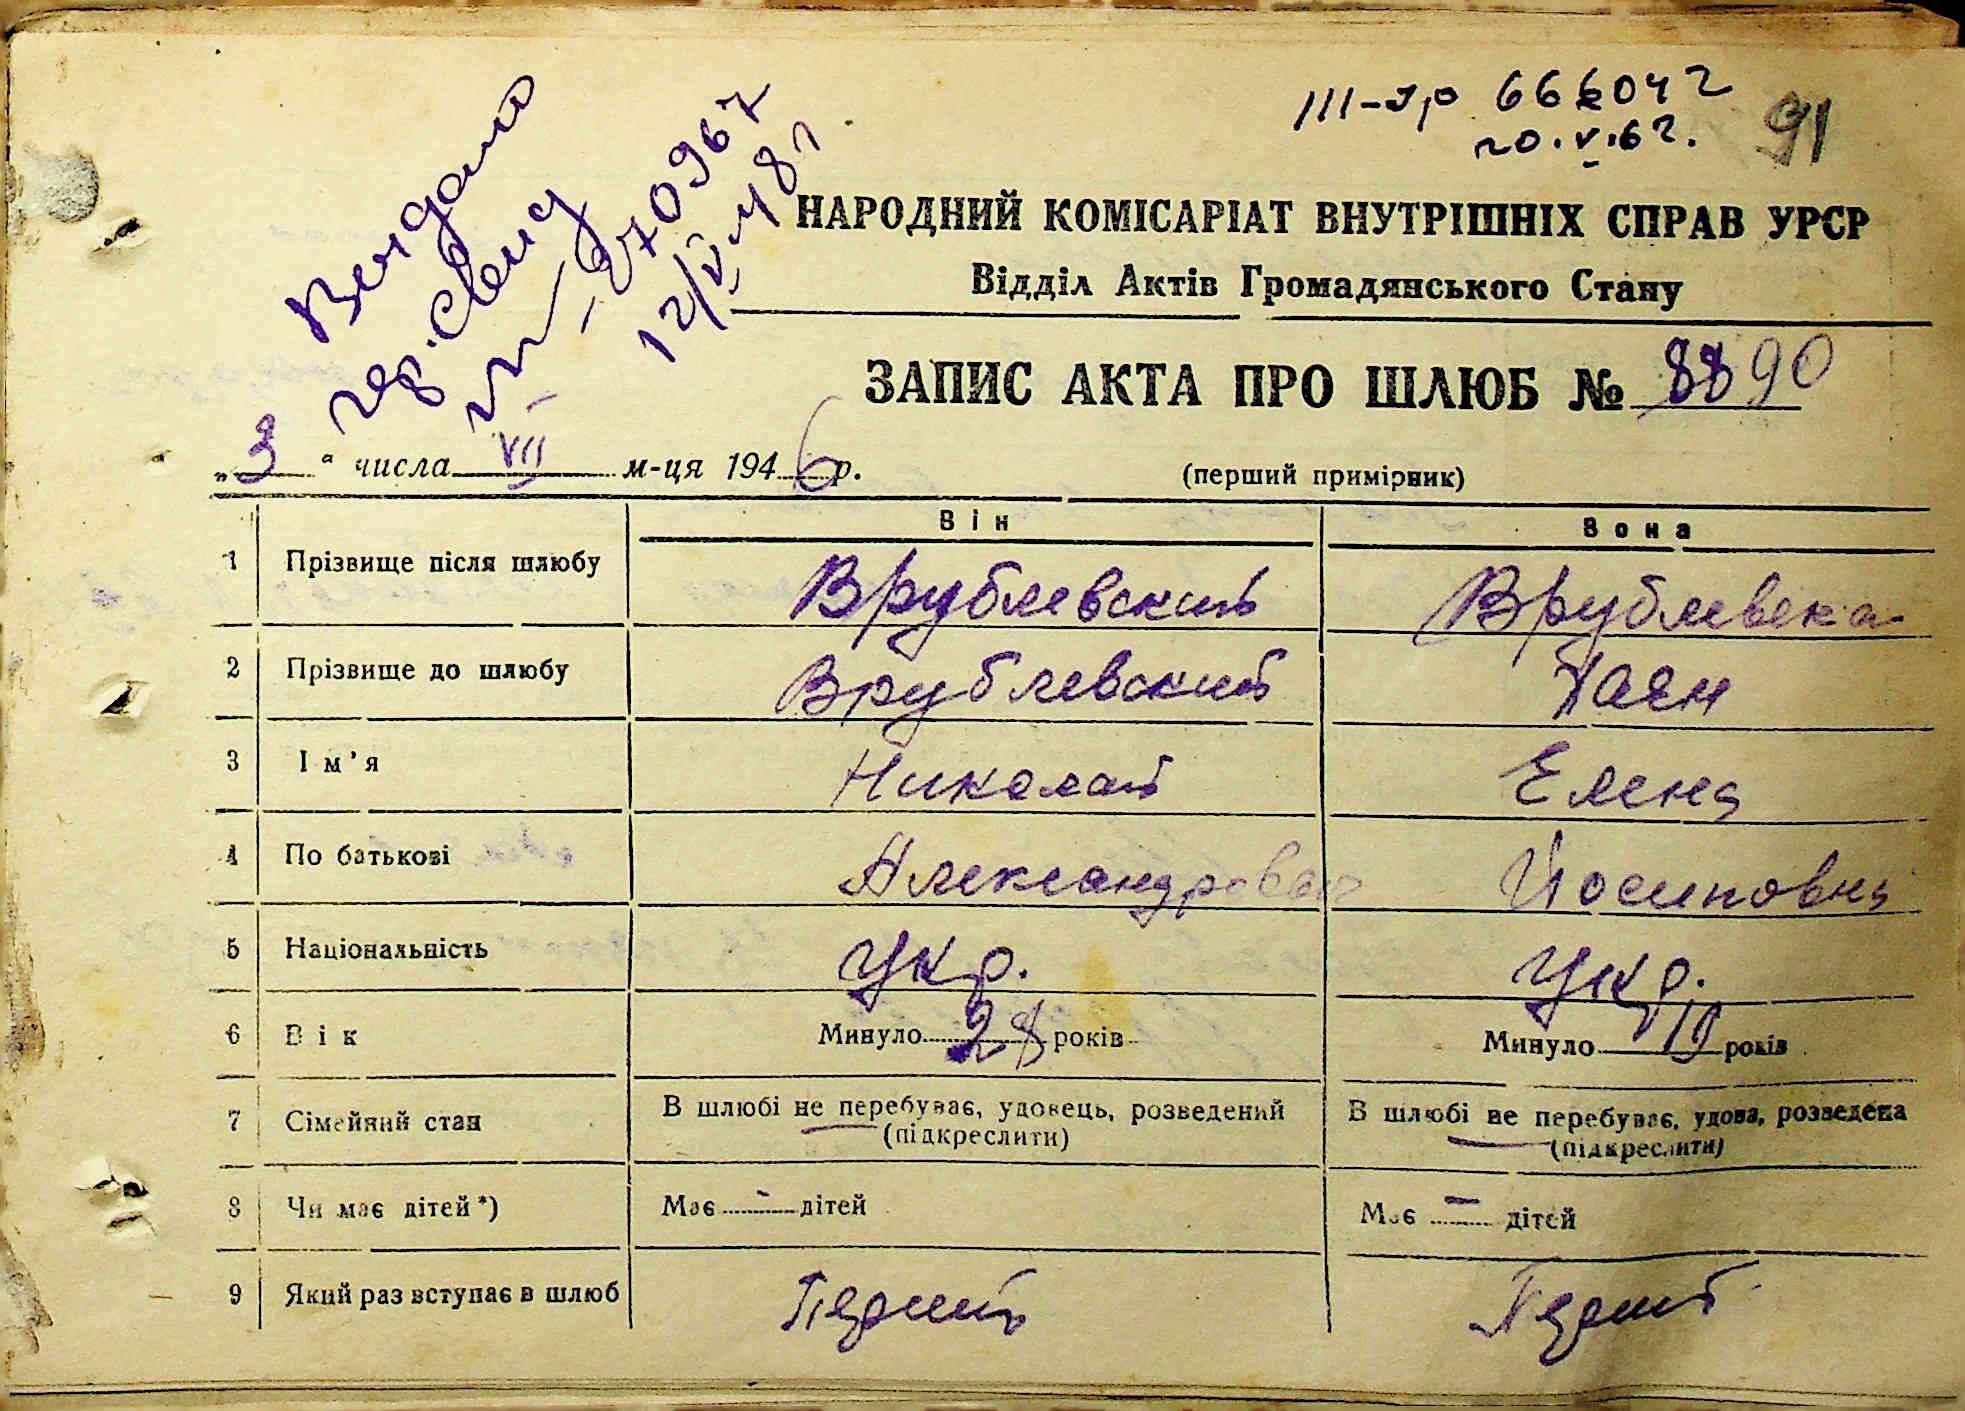 III-гр 666042
20.V.62.
91
12/VI-48
НАРОДНИЙ КОМІСАРІАТ ВНУТРІШНІХ СПРАВ УРСР
Відділ Актів Громадянського Стану
ЗАПИС АКТА ПРО ШЛЮБ № 90
„3" числа VII м-ця 1946 р.
(перший примірник)
Він Вона
1 Прізвище після шлюбу Врублевский Врублевска
2 Прізвище до шлюбу Врублевский
3 Ім'я Николай Елена
4 По батькові Александрович Йосиповна
5 Національність Укр. Укр.
6 Вік Минуло 28 років Минуло 19 років
7 Сімейний стан В шлюбі не перебуває, удовець, розведений (підкреслити) В шлюбі не перебуває, удова, розведена (підкреслити)
8 Чи має дітей *) Має – дітей Має – дітей
9 Який раз вступає в шлюб Перший Перший